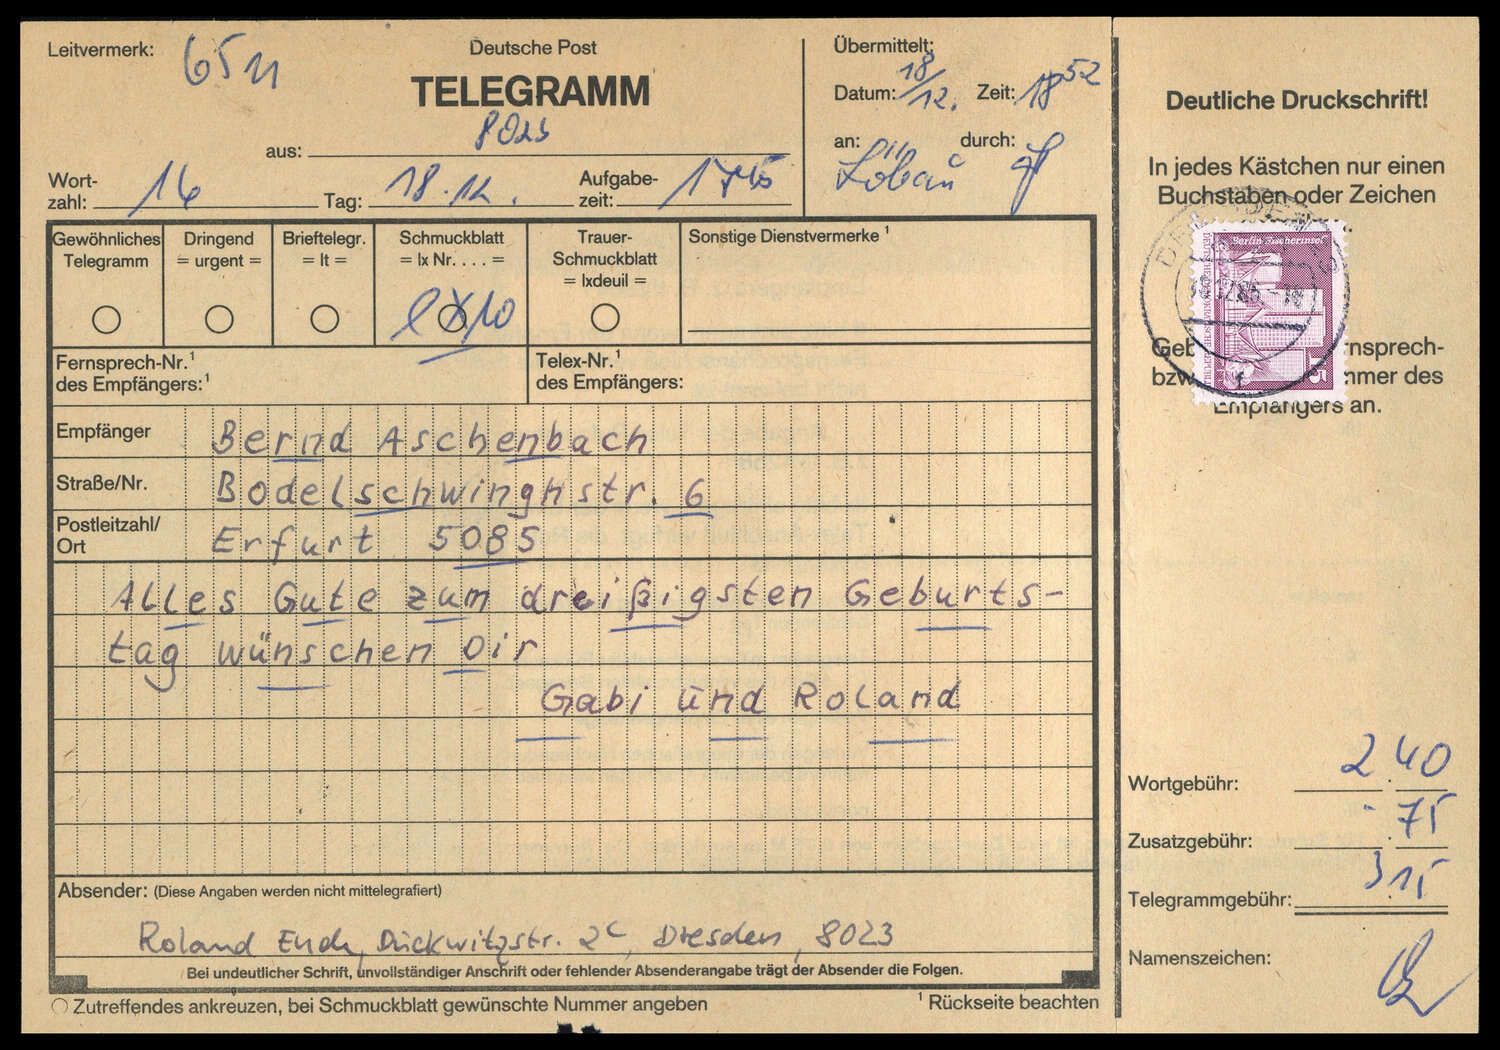 Leitvermerk: 65
Deutsche Post
TELEGRAMM
aus: 8023
Wort-
zahl: 16
Tag: 18.12.
Aufgabe-
zeit: 1745
Übermittelt:
Datum: 18/12. Zeit: 18 52
an: durch:
Löbau
Gewöhnliches
Telegramm
Dringend
= urgent =
Brieftelegr.
= lt =
Schmuckblatt
= lx Nr. . . . =
lx 10
Trauer-
Schmuckblatt
= lxdeuil =
Sonstige Dienstvermerke ¹
Fernsprech-Nr.¹
des Empfängers:¹
Telex-Nr.¹
des Empfängers:
Empfänger Bernd Aschenbach
Straße/Nr. Bodelschwinghstr. 6
Postleitzahl/
Ort Erfurt 5085
Alles Gute zum dreißigsten Geburts-
tag wünschen Dir
Gabi und Roland
Absender: (Diese Angaben werden nicht mittelegrafiert)
Roland Dückwitzstr. 2c, Dresden, 8023
Bei undeutlicher Schrift, unvollständiger Anschrift oder fehlender Absenderangabe trägt der Absender die Folgen.
Zutreffendes ankreuzen, bei Schmuckblatt gewünschte Nummer angeben
¹ Rückseite beachten
Deutliche Druckschrift!
In jedes Kästchen nur einen
Buchstaben oder Zeichen
Berlin Fischerinsel
15
des
Empfängers an.
Wortgebühr: 2.40
Zusatzgebühr: -.75
Telegrammgebühr: 3.15
Namenszeichen: